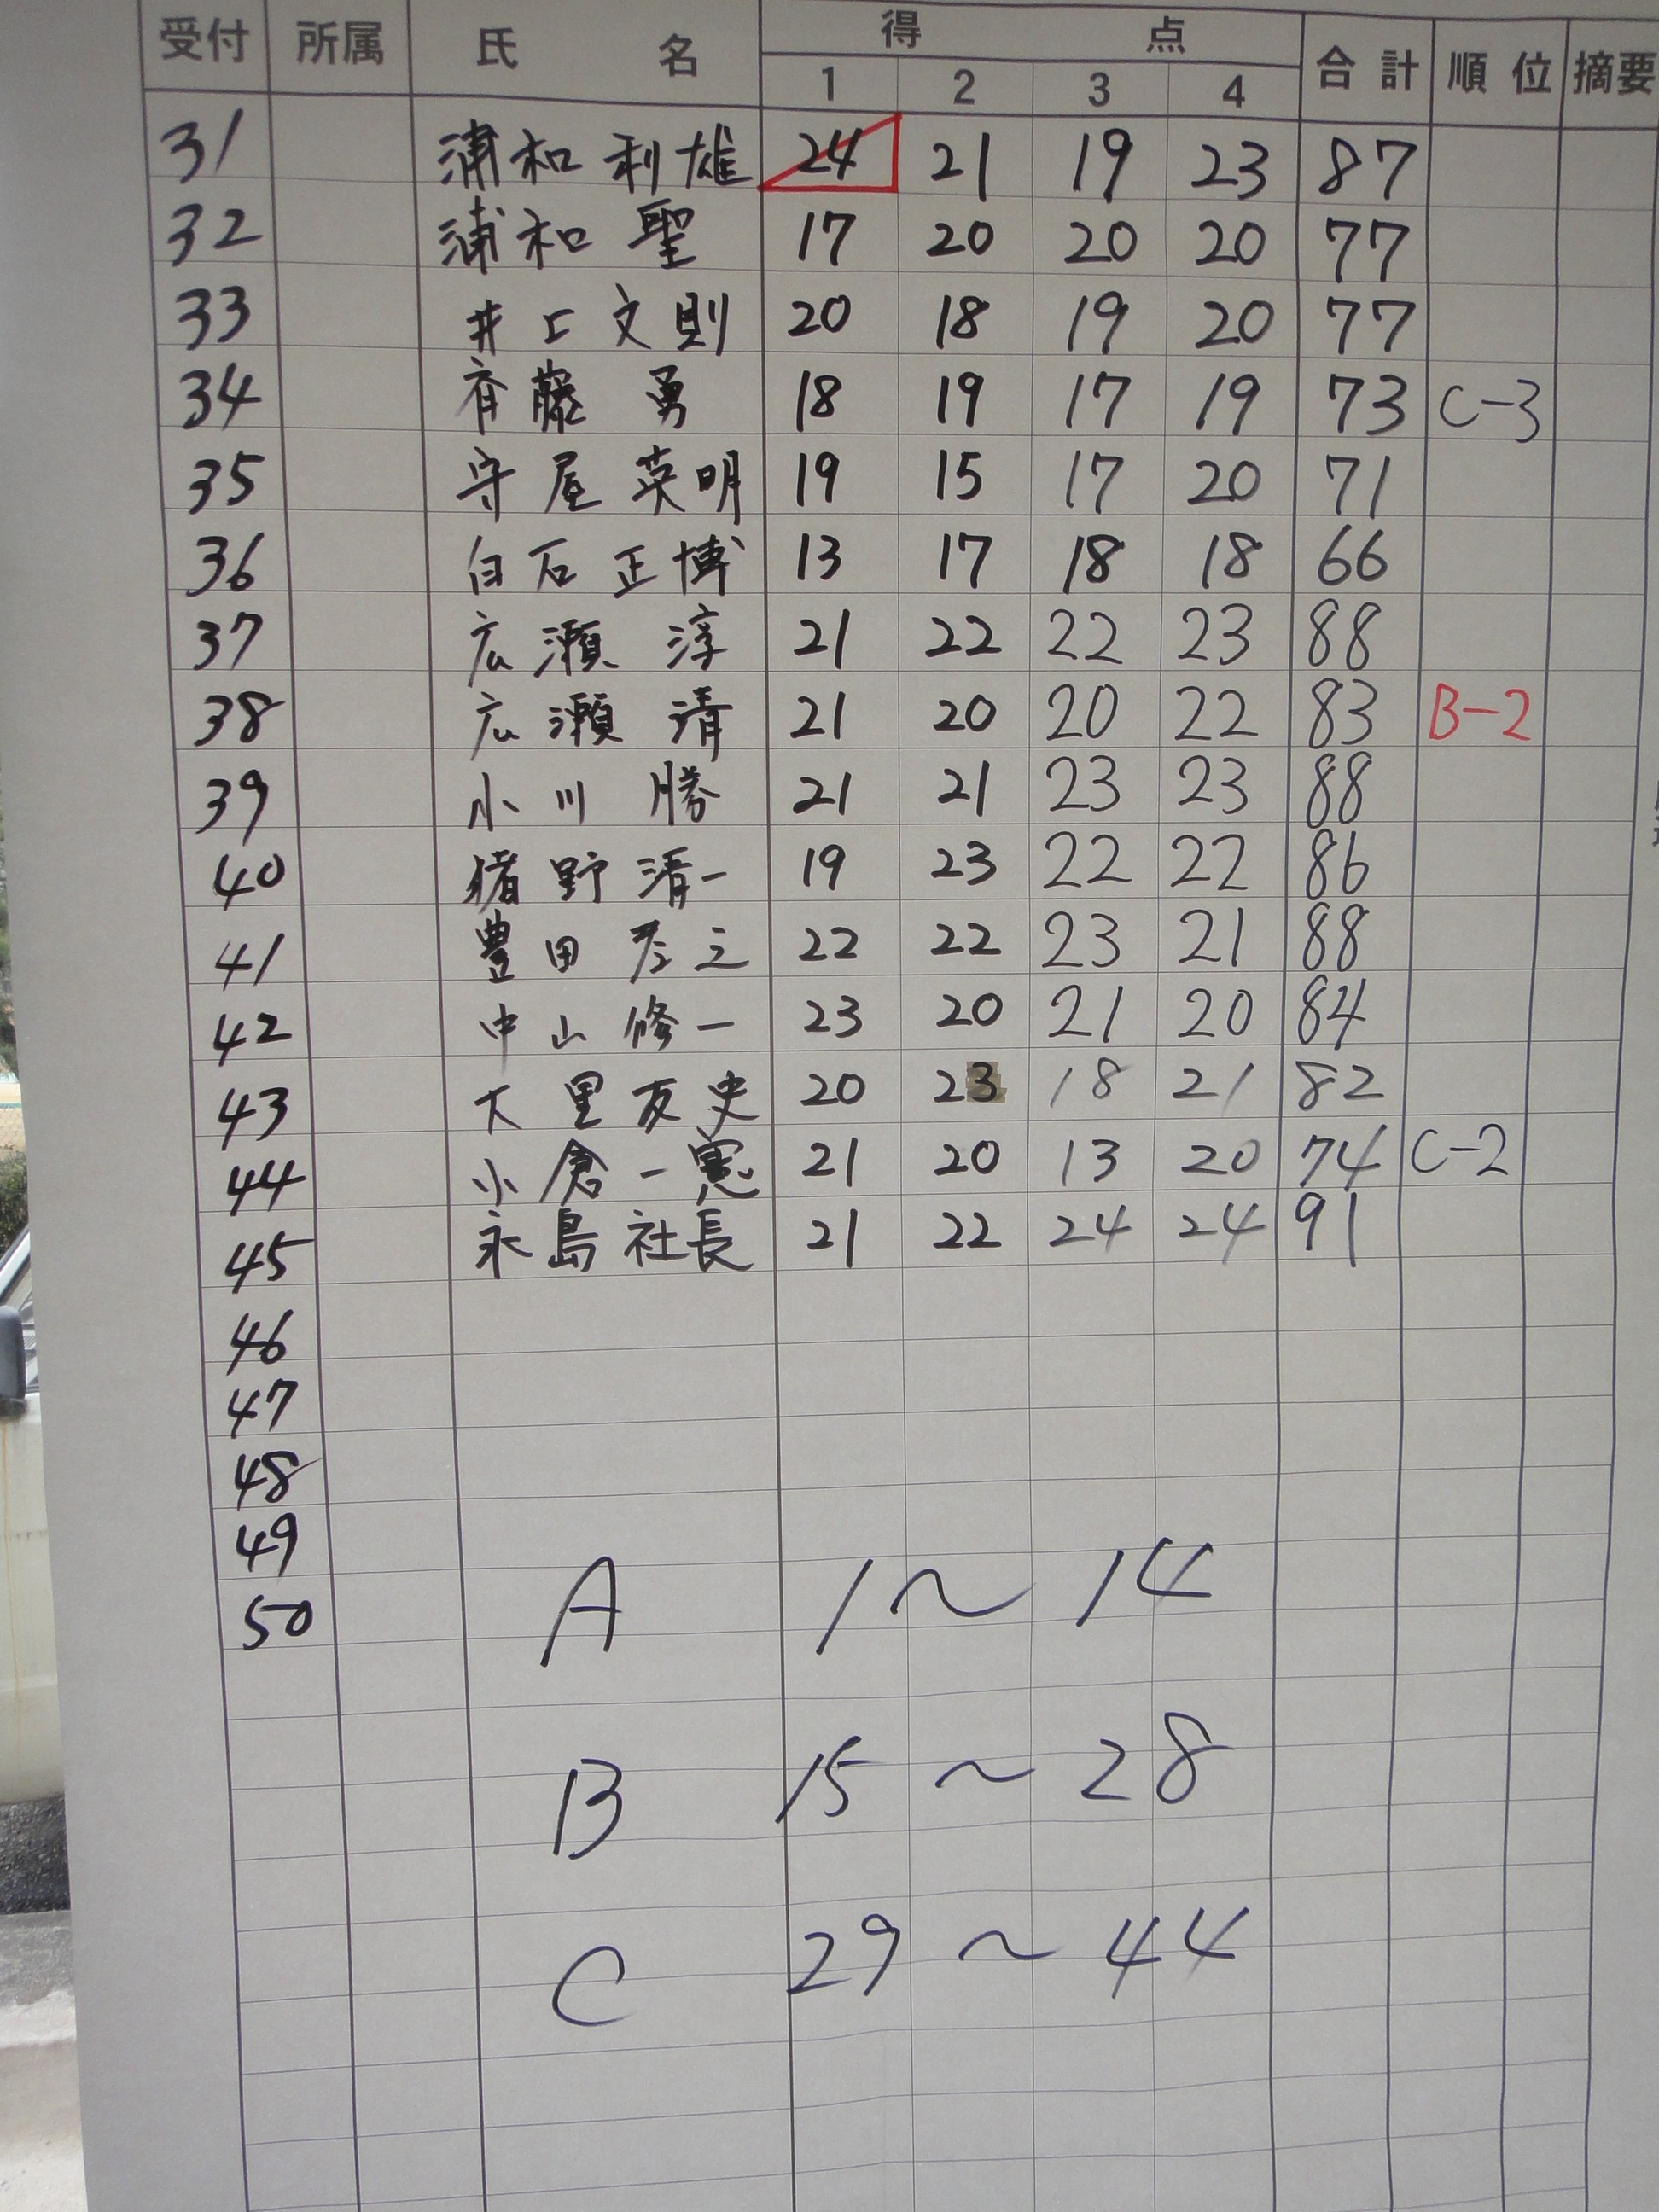 受付 所属 氏名 得点 合計 順位 摘要
1 2 3 4
31 浦和利雄 24 21 19 23 87
32 浦和聖 17 20 20 20 77
33 井上文則 20 18 19 20 77
34 斉藤勇 18 19 17 19 73 C-3
35 守屋英明 19 15 17 20 71
36 白石正博 13 17 18 18 66
37 広瀬淳 21 22 22 23 88
38 広瀬清 21 20 20 22 83 B-2
39 小川勝 21 21 23 23 88
40 猪野清一 19 23 22 22 86
41 豊田彦三 22 22 23 21 88
42 中山修一 23 20 21 20 84
43 大里友史 20 23 18 21 82
44 小倉一憲 21 20 13 20 74 C-2
45 永島社長 21 22 24 24 91
46
47
48
49
50
A 1〜14
B 15〜28
C 29〜44